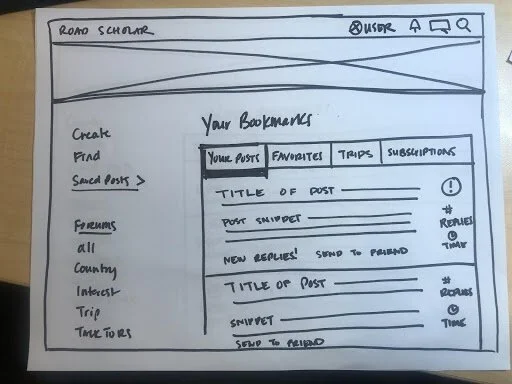 ROAD SCHOLAR
USER
Your Bookmarks
Create
Find
Saved Posts >
Forums
all
Country
Interest
Trip
TALK TO RS
YOUR POSTS
FAVORITES
TRIPS
SUBSCRIPTIONS
TITLE OF POST
!
POST SNIPPET
#
REPLIES
TIME
NEW REPLIES! SEND TO FRIEND
TITLE OF POST
#
REPLIES
SNIPPET
TIME
SEND TO FRIEND